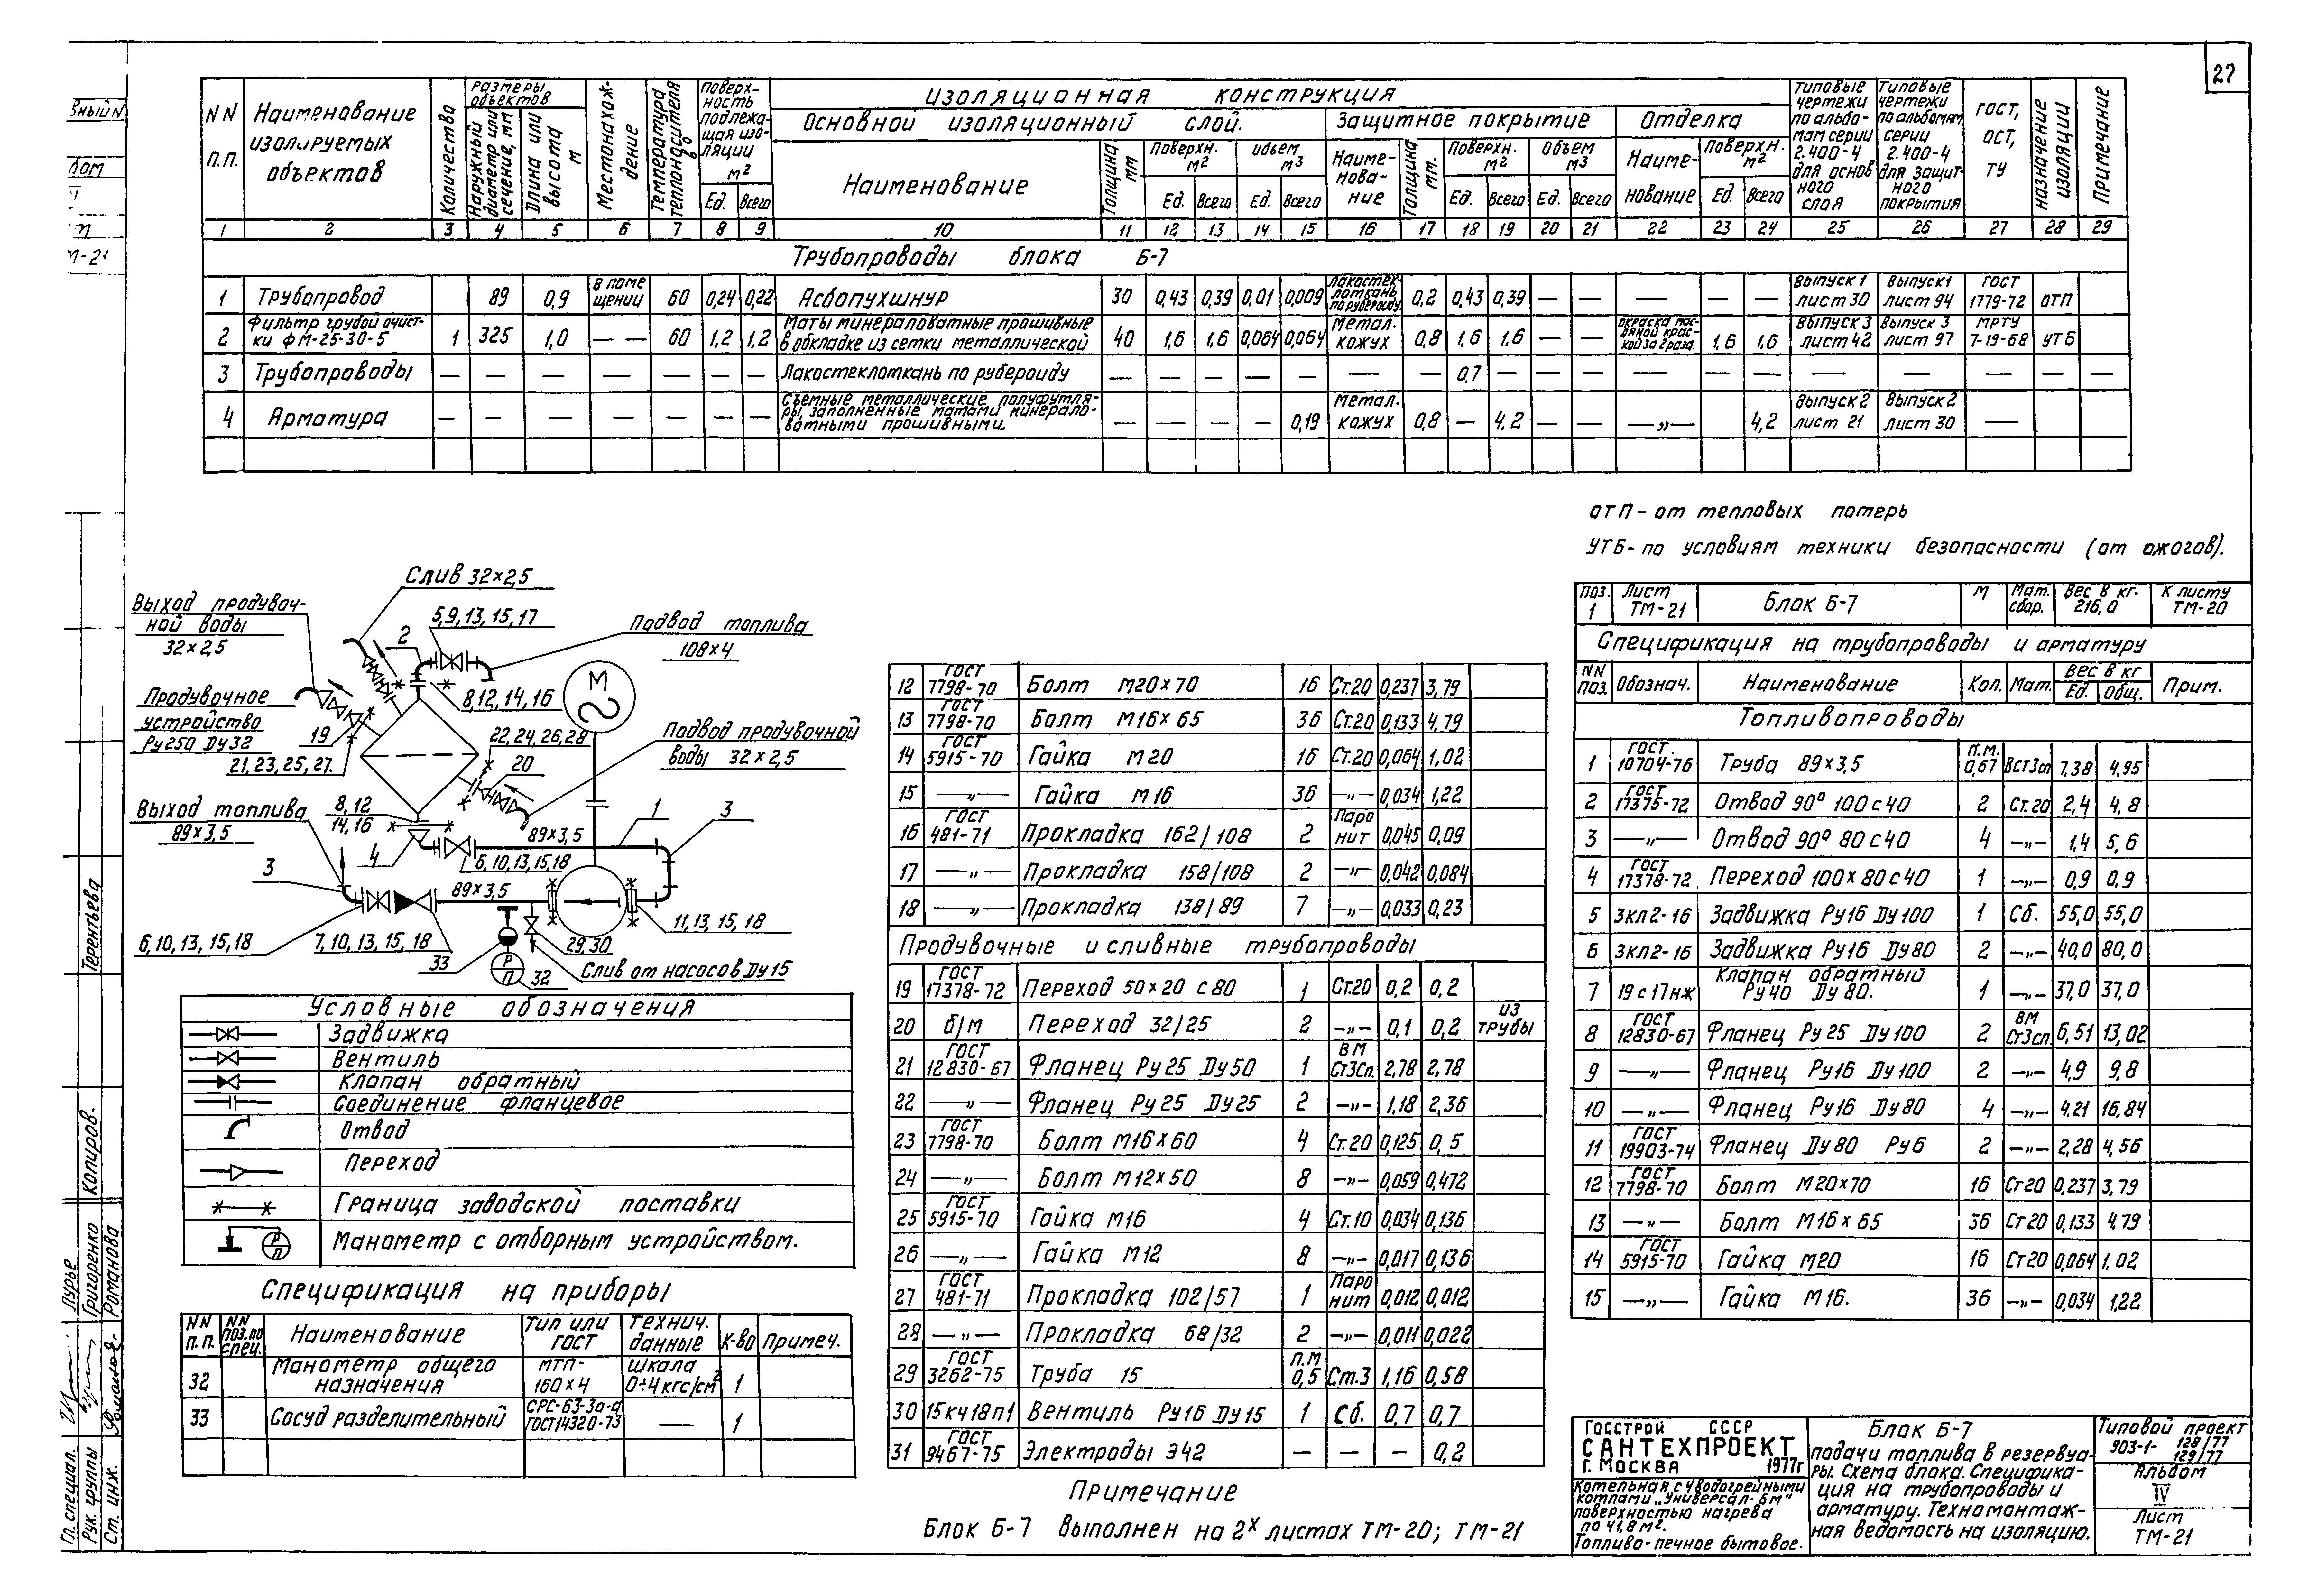 27
NN п.п.
Наименование изолируемых объектов
Количества
Размеры объектов
Наружный диаметр или сечение, мм
Длина или высота м
Местонахождение
Температура теплоносителя
Поверхность подлежащая изоляции м²
Ед. Всего
Изоляционная конструкция
Основной изоляционный слой.
Наименование
Толщина мм
Поверхн. м2
Ед. Всего
Объем м3
Ед. Всего
Защитное покрытие
Наименование
Толщина мм.
Поверхн. м2
Ед. Всего
Объем м3
Ед. Всего
Отделка
Наименование
Поверхн. м2
Ед. Всего
Типовые чертежи по альбомам серии 2.400-4 для основного слоя
Типовые чертежи по альбомам серии 2.400-4 для защитного покрытия
ГОСТ, ОСТ, ТУ
Назначение изоляции
Примечание
1 2 3 4 5 6 7 8 9 10 11 12 13 14 15 16 17 18 19 20 21 22 23 24 25 26 27 28 29
Трубопроводы блока Б-7
1 Трубопровод 89 0,9 в помещении 60 0,24 0,22 Асбопухшнур 30 0,43 0,39 0,01 0,009 Лакостеклоткань по рубероиду 0,2 0,43 0,39 — — — — — Выпуск 1 лист 30 Выпуск 1 лист 94 ГОСТ 1779-72 ОТП
2 Фильтр грубой очистки ФМ-25-30-5 1 325 1,0 — — 60 1,2 1,2 Маты минераловатные прошивные в обкладке из сетки металлической 40 1,6 1,6 0,064 0,064 Метал. кожух 0,8 1,6 1,6 — — окраска масляной краской за 2 раза. 1,6 1,6 Выпуск 3 лист 42 Выпуск 3 лист 97 МРТУ 7-19-68 УТБ
3 Трубопроводы — — — — — — — Лакостеклоткань по рубероиду — — — — — — — 0,7 — — — — — — — — — — —
4 Арматура — — — — — — — Съемные металлические полуфутляры, заполненные матами минераловатными прошивными. — — — — 0,19 Метал. кожух 0,8 — 4,2 — — —„— 4,2 Выпуск 2 лист 21 Выпуск 2 лист 30 —
ОТП - от тепловых потерь
УТБ - по условиям техники безопасности (от ожогов).
Слив 32×2,5
Выход продувочной воды
32×2,5
2
5,9,13,15,17
Подвод топлива
108×4
8,12,14,16
М
Продувочное устройство
Ру250 Ду32
19
21, 23, 25, 27.
22, 24, 26, 28
20
Подвод продувочной воды 32×2,5
Выход топлива
89×3,5
8,12
14,16
4
89×3,5
1
3
6,10,13,15,18
3
89×3,5
6,10,13,15,18
7,10,13,15,18
33
Р
П
32
29,30
11,13,15,18
Слив от насосов Ду15
Условные обозначения
Задвижка
Вентиль
Клапан обратный
Соединение фланцевое
Отвод
Переход
Граница заводской поставки
Р
П
Манометр с отборным устройством.
Спецификация на приборы
NN п.п. NN поз. по спец. Наименование Тип или ГОСТ Технич. данные К-во Примеч.
32 Манометр общего назначения МТП-160×4 Шкала 0÷4 кгс/см² 1
33 Сосуд разделительный ГОСТ14320-73 — 1
12 ГОСТ 7798-70 Болт М20×70 16 Ст.20 0,237 3,79
13 ГОСТ 7798-70 Болт М16×65 36 Ст.20 0,133 4,79
14 ГОСТ 5915-70 Гайка М20 16 Ст.20 0,064 1,02
15 —„— Гайка М16 36 —„— 0,034 1,22
16 ГОСТ 481-71 Прокладка 162/108 2 Паронит 0,045 0,09
17 —„— Прокладка 158/108 2 —„— 0,042 0,084
18 —„— Прокладка 138/89 7 —„— 0,033 0,23
Продувочные и сливные трубопроводы
19 ГОСТ 17378-72 Переход 50×20 с80 1 Ст.20 0,2 0,2
20 б/м Переход 32/25 2 —„— 0,1 0,2 из трубы
21 ГОСТ 12830-67 Фланец Ру25 Ду50 1 ВМ Ст3сп. 2,78 2,78
22 —„— Фланец Ру25 Ду25 2 —„— 1,18 2,36
23 ГОСТ 7798-70 Болт М16×60 4 Ст.20 0,125 0,5
24 —„— Болт М12×50 8 —„— 0,059 0,472
25 ГОСТ 5915-70 Гайка М16 4 Ст.10 0,034 0,136
26 —„— Гайка М12 8 —„— 0,017 0,136
27 ГОСТ 481-71 Прокладка 102/57 1 Паронит 0,012 0,012
28 —„— Прокладка 68/32 2 —„— 0,011 0,022
29 ГОСТ 3262-75 Труба 15 п.м 0,5 Ст.3 1,16 0,58
30 15кч18п1 Вентиль Ру16 Ду15 1 Сб. 0,7 0,7
31 ГОСТ 9467-75 Электроды Э42 — — — 0,2
Примечание
Блок Б-7 выполнен на 2х листах ТМ-20; ТМ-21
Поз. 1 Лист ТМ-21 Блок Б-7 М Мат. сбор. Вес в кг. 216,0 К листу ТМ-20
Спецификация на трубопроводы и арматуру
NN поз. Обознач. Наименование Кол. Мат. Вес в кг Ед. Общ. Прим.
Топливопроводы
1 ГОСТ 10704-76 Труба 89×3,5 п.м. 0,67 Вст3сп 7,38 4,95
2 ГОСТ 17375-72 Отвод 90° 100 с40 2 Ст.20 2,4 4,8
3 —„— Отвод 90° 80 с40 4 —„— 1,4 5,6
4 ГОСТ 17378-72 Переход 100×80 с40 1 —„— 0,9 0,9
5 3кл2-16 Задвижка Ру16 Ду100 1 Сб. 55,0 55,0
6 3кл2-16 Задвижка Ру16 Ду80 2 —„— 40,0 80,0
7 19с17нж Клапан обратный Ру40 Ду80. 1 —„— 37,0 37,0
8 ГОСТ 12830-67 Фланец Ру25 Ду100 2 ВМ Ст3сп. 6,51 13,02
9 —„— Фланец Ру16 Ду100 2 —„— 4,9 9,8
10 —„— Фланец Ру16 Ду80 4 —„— 4,21 16,84
11 ГОСТ 19903-74 Фланец Ду80 Ру6 2 —„— 2,28 4,56
12 ГОСТ 7798-70 Болт М20×70 16 Ст20 0,237 3,79
13 —„— Болт М16×65 36 Ст20 0,133 4,79
14 ГОСТ 5915-70 Гайка М20 16 Ст20 0,064 1,02
15 —„— Гайка М16. 36 —„— 0,034 1,22
Госстрой СССР
САНТЕХПРОЕКТ
г. Москва 1977г
Котельная с 4 водогрейными
котлами „Универсал-6м"
поверхностью нагрева
по 41,8 м².
Топливо-печное бытовое.
Блок Б-7
подачи топлива в резервуа-
ры. Схема блока. Специфика-
ция на трубопроводы и
арматуру. Техномонтаж-
ная ведомость на изоляцию.
Типовой проект
903-1- 128/77
129/77
Альбом
IV
Лист
ТМ-21
Терентьева
Копиров.
Лурье
Григоренко
Романова
Гл. специал.
Рук. группы
Ст. инж.